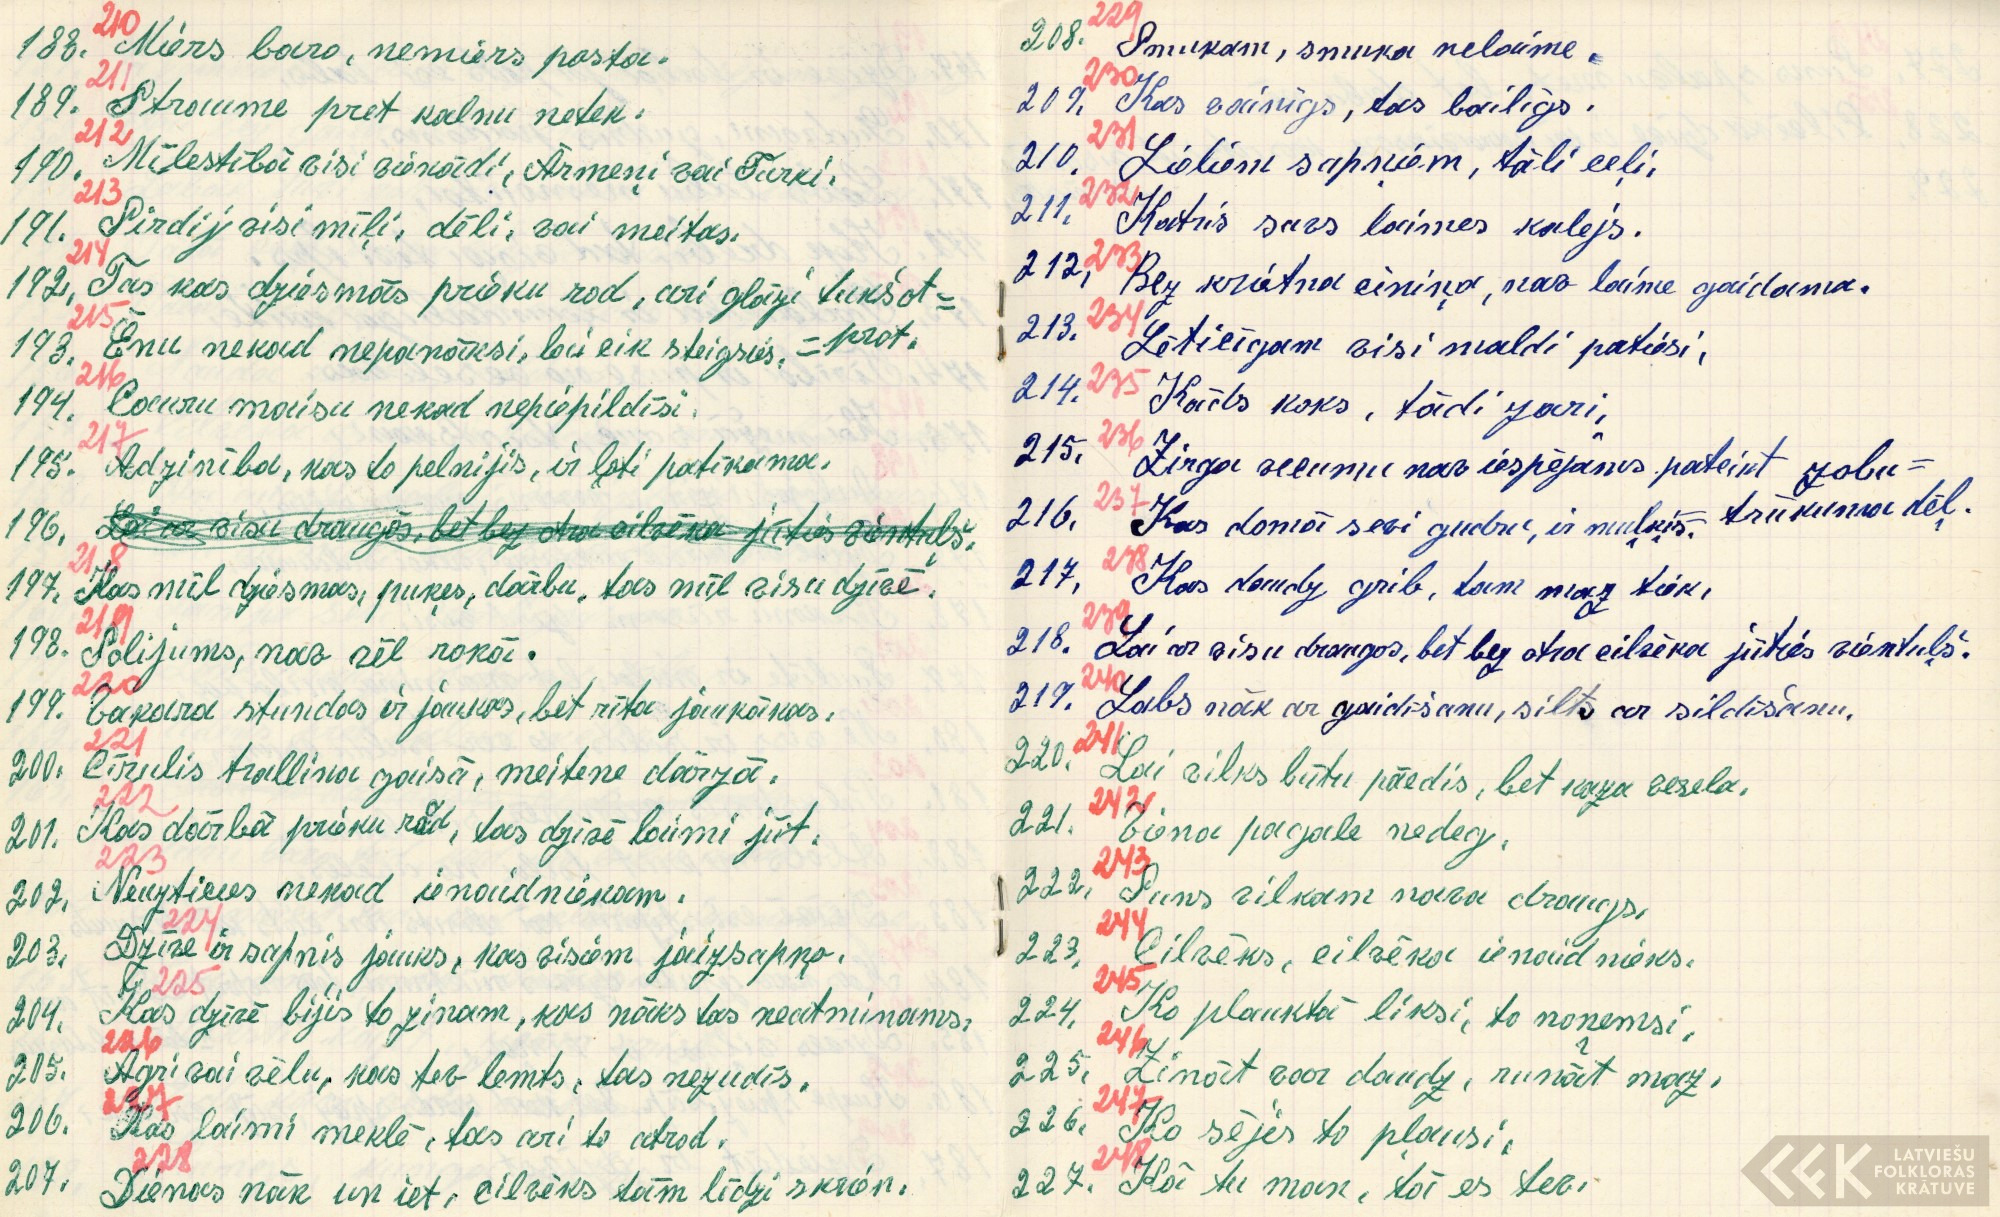 210
188. Miers baro, nemiers posta.
211
189. Straume pret kalnu netek.
212
190. Mīlestībā visi vienādi, Ārmeņi vai Turki.
213
191. Sirdij visi mīļi, dēli, vai meitas.
214
192. Tas kas dziesmās prieku rod, arī glāzi tukšot=
215
193. Ēnu nekad nepanāksi, lai cik steigsies. =prot.
216
194. Cauru maisu nekad nepiepildīsi.
217
195. Atzinība, kas to pelnijis, ir ļoti patīkama.
196. Lai ar visu draugos, bet bez otra cilvēka jūties vientuļš.
218
197. Kas mīl dziesmas, puķes, dārbu, tas mīl visu dzīvē.
219
198. Solijums, nav vēl rokā.
220
199. Vakara stundas ir jaukas, bet rīta jaukākas.
221
200. Cīrulis trallina gaisā, meitene dārzā.
222
201. Kas dārbā prieku rod, tas dzīvē laimi jūt.
223
202. Neuzticies nekad ienaidniekam.
224
203. Dzīve ir sapnis jauks, kas visiem jāizsapņo.
225
204. Kas dzīvē bijis to zinam, kas nāks tas neatminams.
226
205. Agri vai vēlu, kas tev lemts, tas nezudīs.
227
206. Kas laimi meklē, tas arī to atrod.
228
207. Dienas nāk un iet, cilvēks tām līdzi skrien.
229
208. Smukam, smuka nelaime.
230
209. Kas vainīgs, tas bailīgs.
231
210. Lieliem sapņiem, tāli ceļi.
232
211. Katris savs laimes kalējs.
233
212. Bez krietna cīniņa, nav laime gaidama.
234
213. Lētticīgam visi maldi patiesi.
235
214. Kāds koks, tādi zari.
236
215. Zirga vecumu nav iespējams pateikt zobu=
237
216. Kas domā sevi gudru, ir muļķis. = trūkuma dēļ.
238
217. Kas daudz grib, tam maz tiek.
239
218. Lai ar visu draugos, bet bez otra cilvēka jūties vientuļš.
240
219. Labs nāk ar gaidīšanu, silts ar sildīšanu.
241
220. Lai vilks būtu pāedis, bet kaza vesela.
242
221. Viena pagale nedeg.
243
222. Suns vilkam nava draugs.
244
223. Cilvēks, cilvēka ienaidnieks.
245
224. Ko plauktā liksi, to noņemsi.
246
225. Zināt var daudz, runāt maz.
247
226. Ko sējis to pļausi.
248
227. Kā tu man, tā es tev.
LATVIEŠU
FOLKLORAS
KRĀTUVE